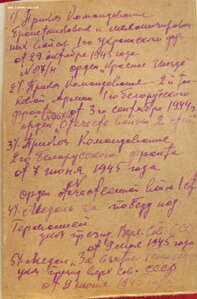 1) Приказ Командование
Бронетанковых и механизирован
ных войск 1го Украинского фр.
от 29 октября 1943 года
орден "Красная звезда"
2) Приказ Командования 2й тан
ковой Армии 1го Белорусского
фронта от 3го сентября 1944 г.
орден Отечеств войны 2 степ
3) Приказ Командование
2го Белорусского фронта
от 7 июня 1945 года
орден отечественной войны 1 ст
4) Медаль за победу над
Германией
указ през. Верх. Сов.
от 9 мая 1945 года
5) Медаль За
указ През Верх Сов. СССР
от 9 июня 1945 года